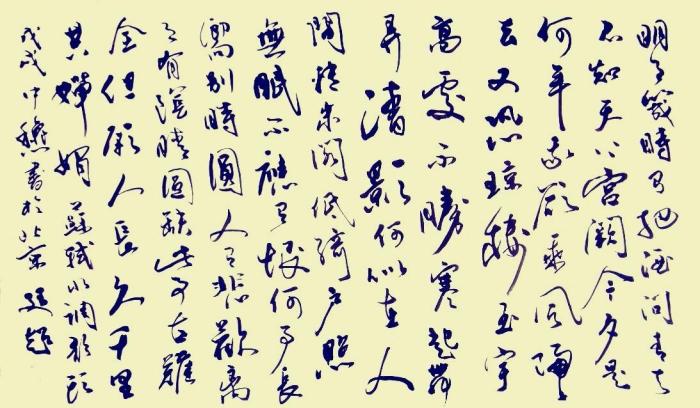 明月幾時有把酒問青天
不知天上宮闕今夕是
何年我欲乘風歸
去又恐瓊樓玉宇
高處不勝寒起舞
弄清影何似在人
間轉朱閣低綺戶照
無眠不應有恨何事長
別時圓人有悲歡離
月有陰晴圓缺此事古難
全但願人長久千里
共嬋娟 蘇軾水調歌頭
戊戌中秋書於北京